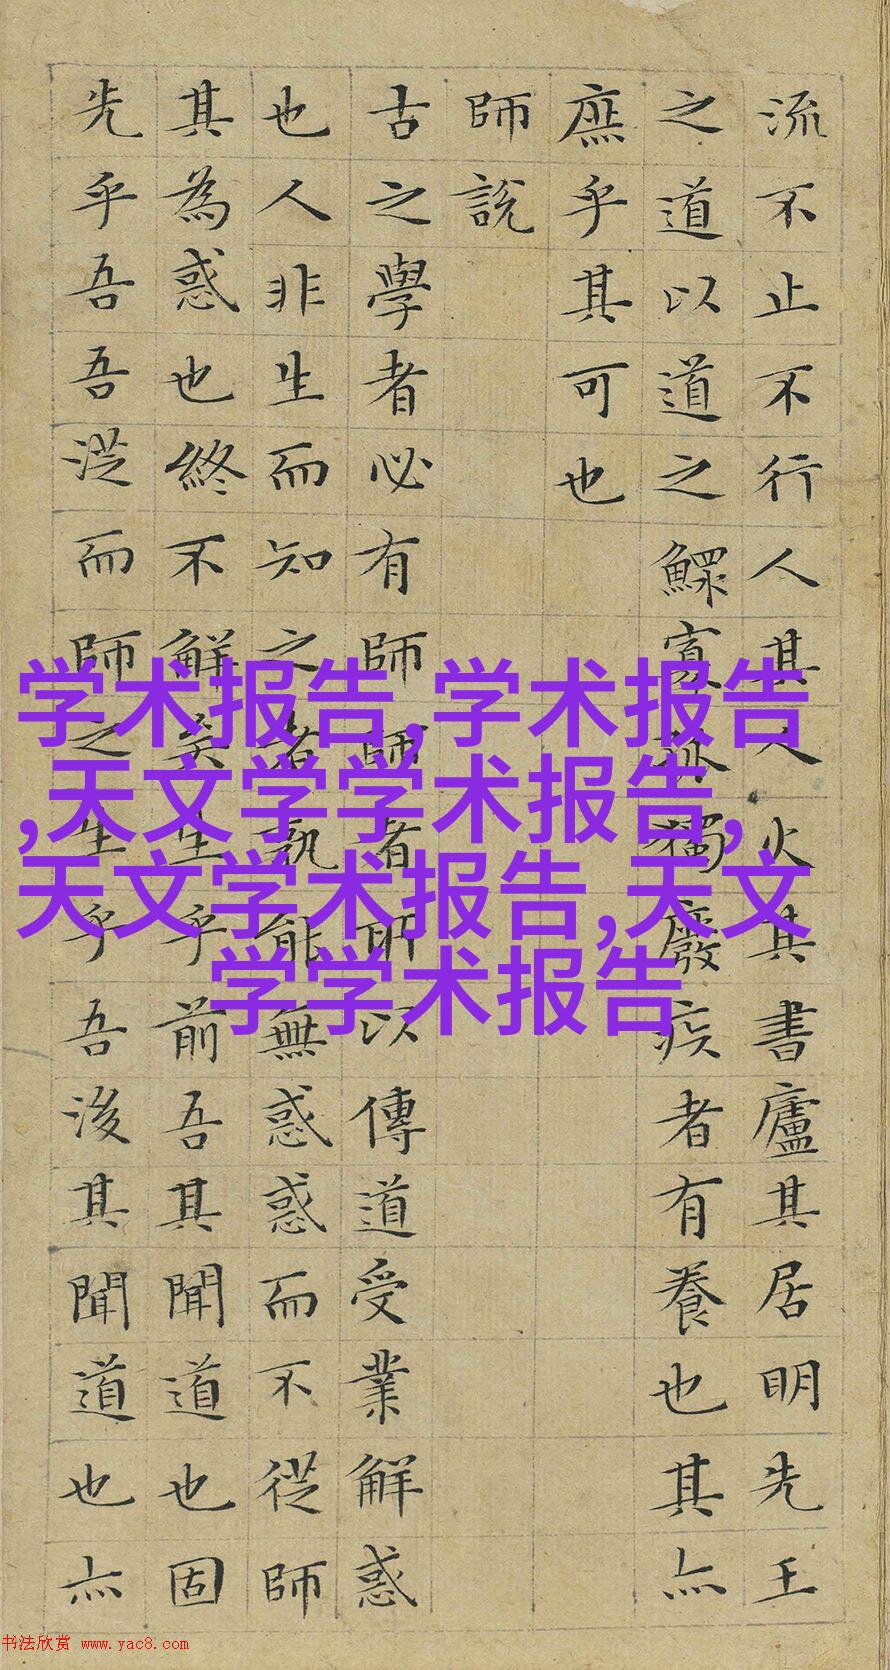 流不止不行人其人火其書廬其居明先王
之道以道之鰥寡孤獨廢疾者有養也其亦
庶乎其可也
師說
古之學者必有師師者所以傳道受業解惑
也人非生而知之者孰能無惑惑而不從師
其為惑也終不解矣生乎前吾其聞道也固
先乎吾吾從而師之生乎吾後其聞道也亦
学术报告,学术报告
,天文学学术报告,
天文学术报告,天文
学学术报告
书法欣赏 www.yac8.com